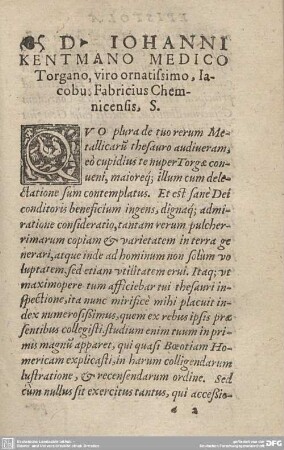 D. IOHANNI
KENTMANO MEDICO
Torgano, viro ornatissimo, Ia-
cobus Fabricius Chem-
nicensis, S.
QVO plura de tuo rerum Me-
tallicarũ thesauro audiueram,
eò cupidius te nuper Torgæ con-
ueni, maioreq; illum cum dele-
ctatione sum contemplatus. Et est sanè Dei
conditoris beneficium ingens, dignaq; admi-
ratione consideratio, tantam rerum pulcher-
rimarum copiam & varietatem in terra ge
nerari, atque inde ad hominum non solùm vo
luptatem sed etiam vtilitatem erui. Itaq; vt
maximopere tum afficiebar tui thesauri in-
spectione, ita nunc mirificè mihi placuit in-
dex numerosissimus, quem ex rebus ipsis præ
sentibus collegisti. studium enim tuum in pri-
mis magnũ apparet, qui quasi Bœotiam Ho-
mericam explicasti, in harum colligendarum
lustratione, & recensendarum ordine. Sed
cùm nullus sit exercitus tantus, qui accessio-
a 2